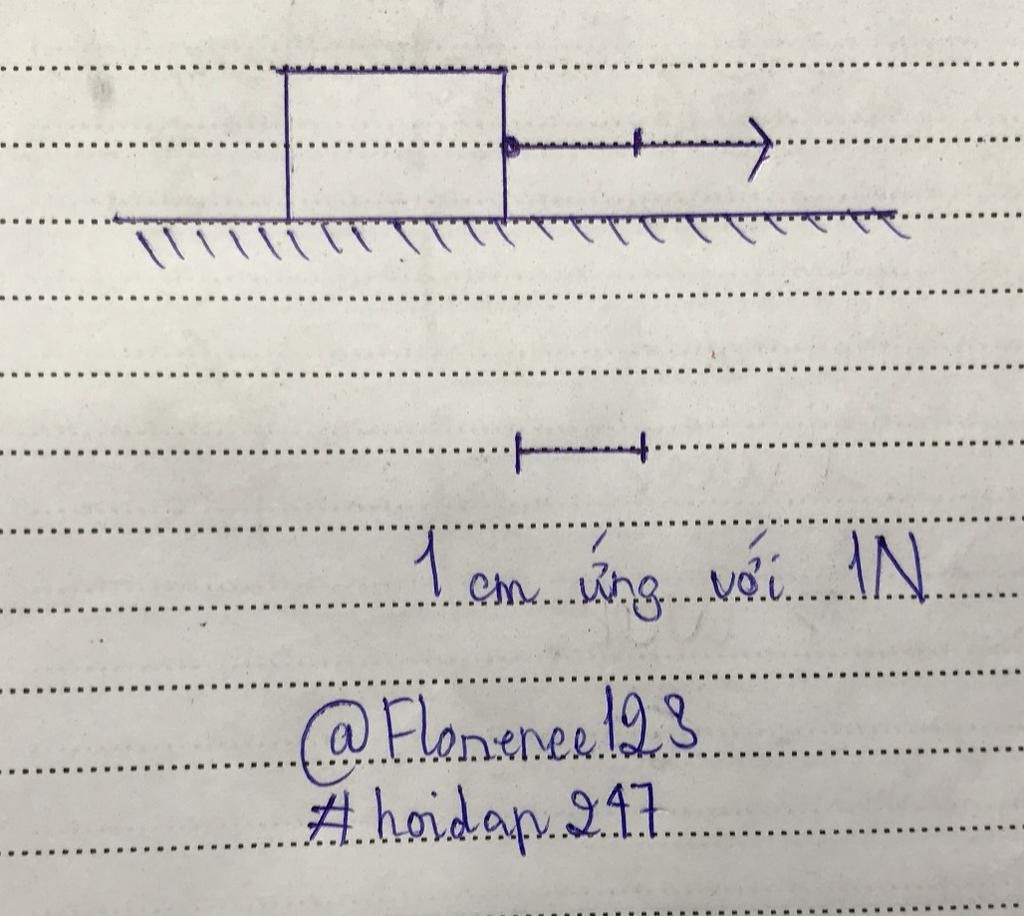 1 cm ứng với 1N
@Florence123
#hoidap247